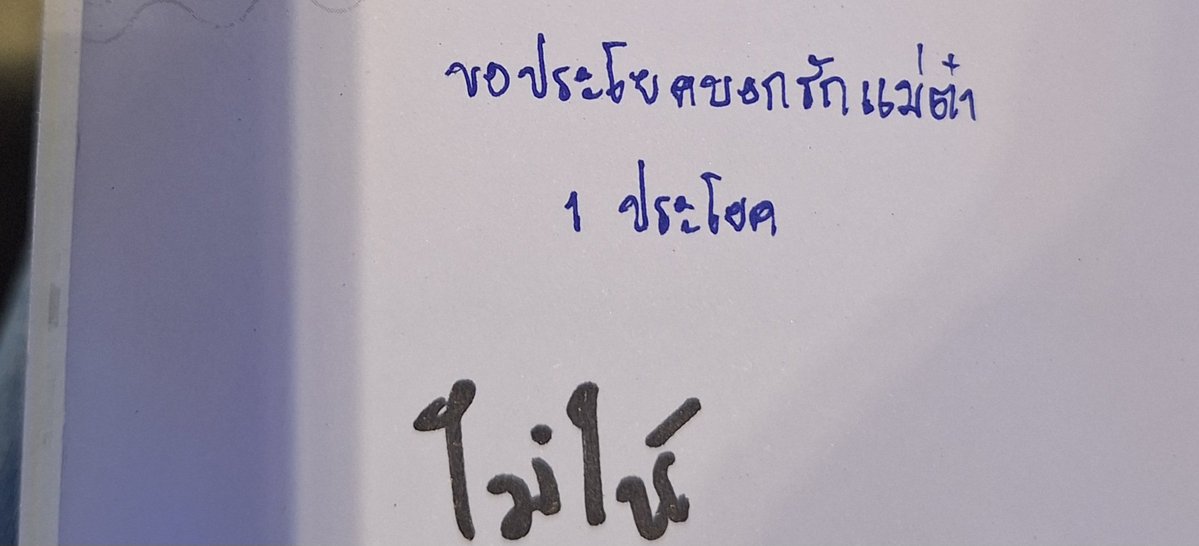 ขอประโยคบอกรักแม่ต๋า
1 ประโยค
ไม่ให้